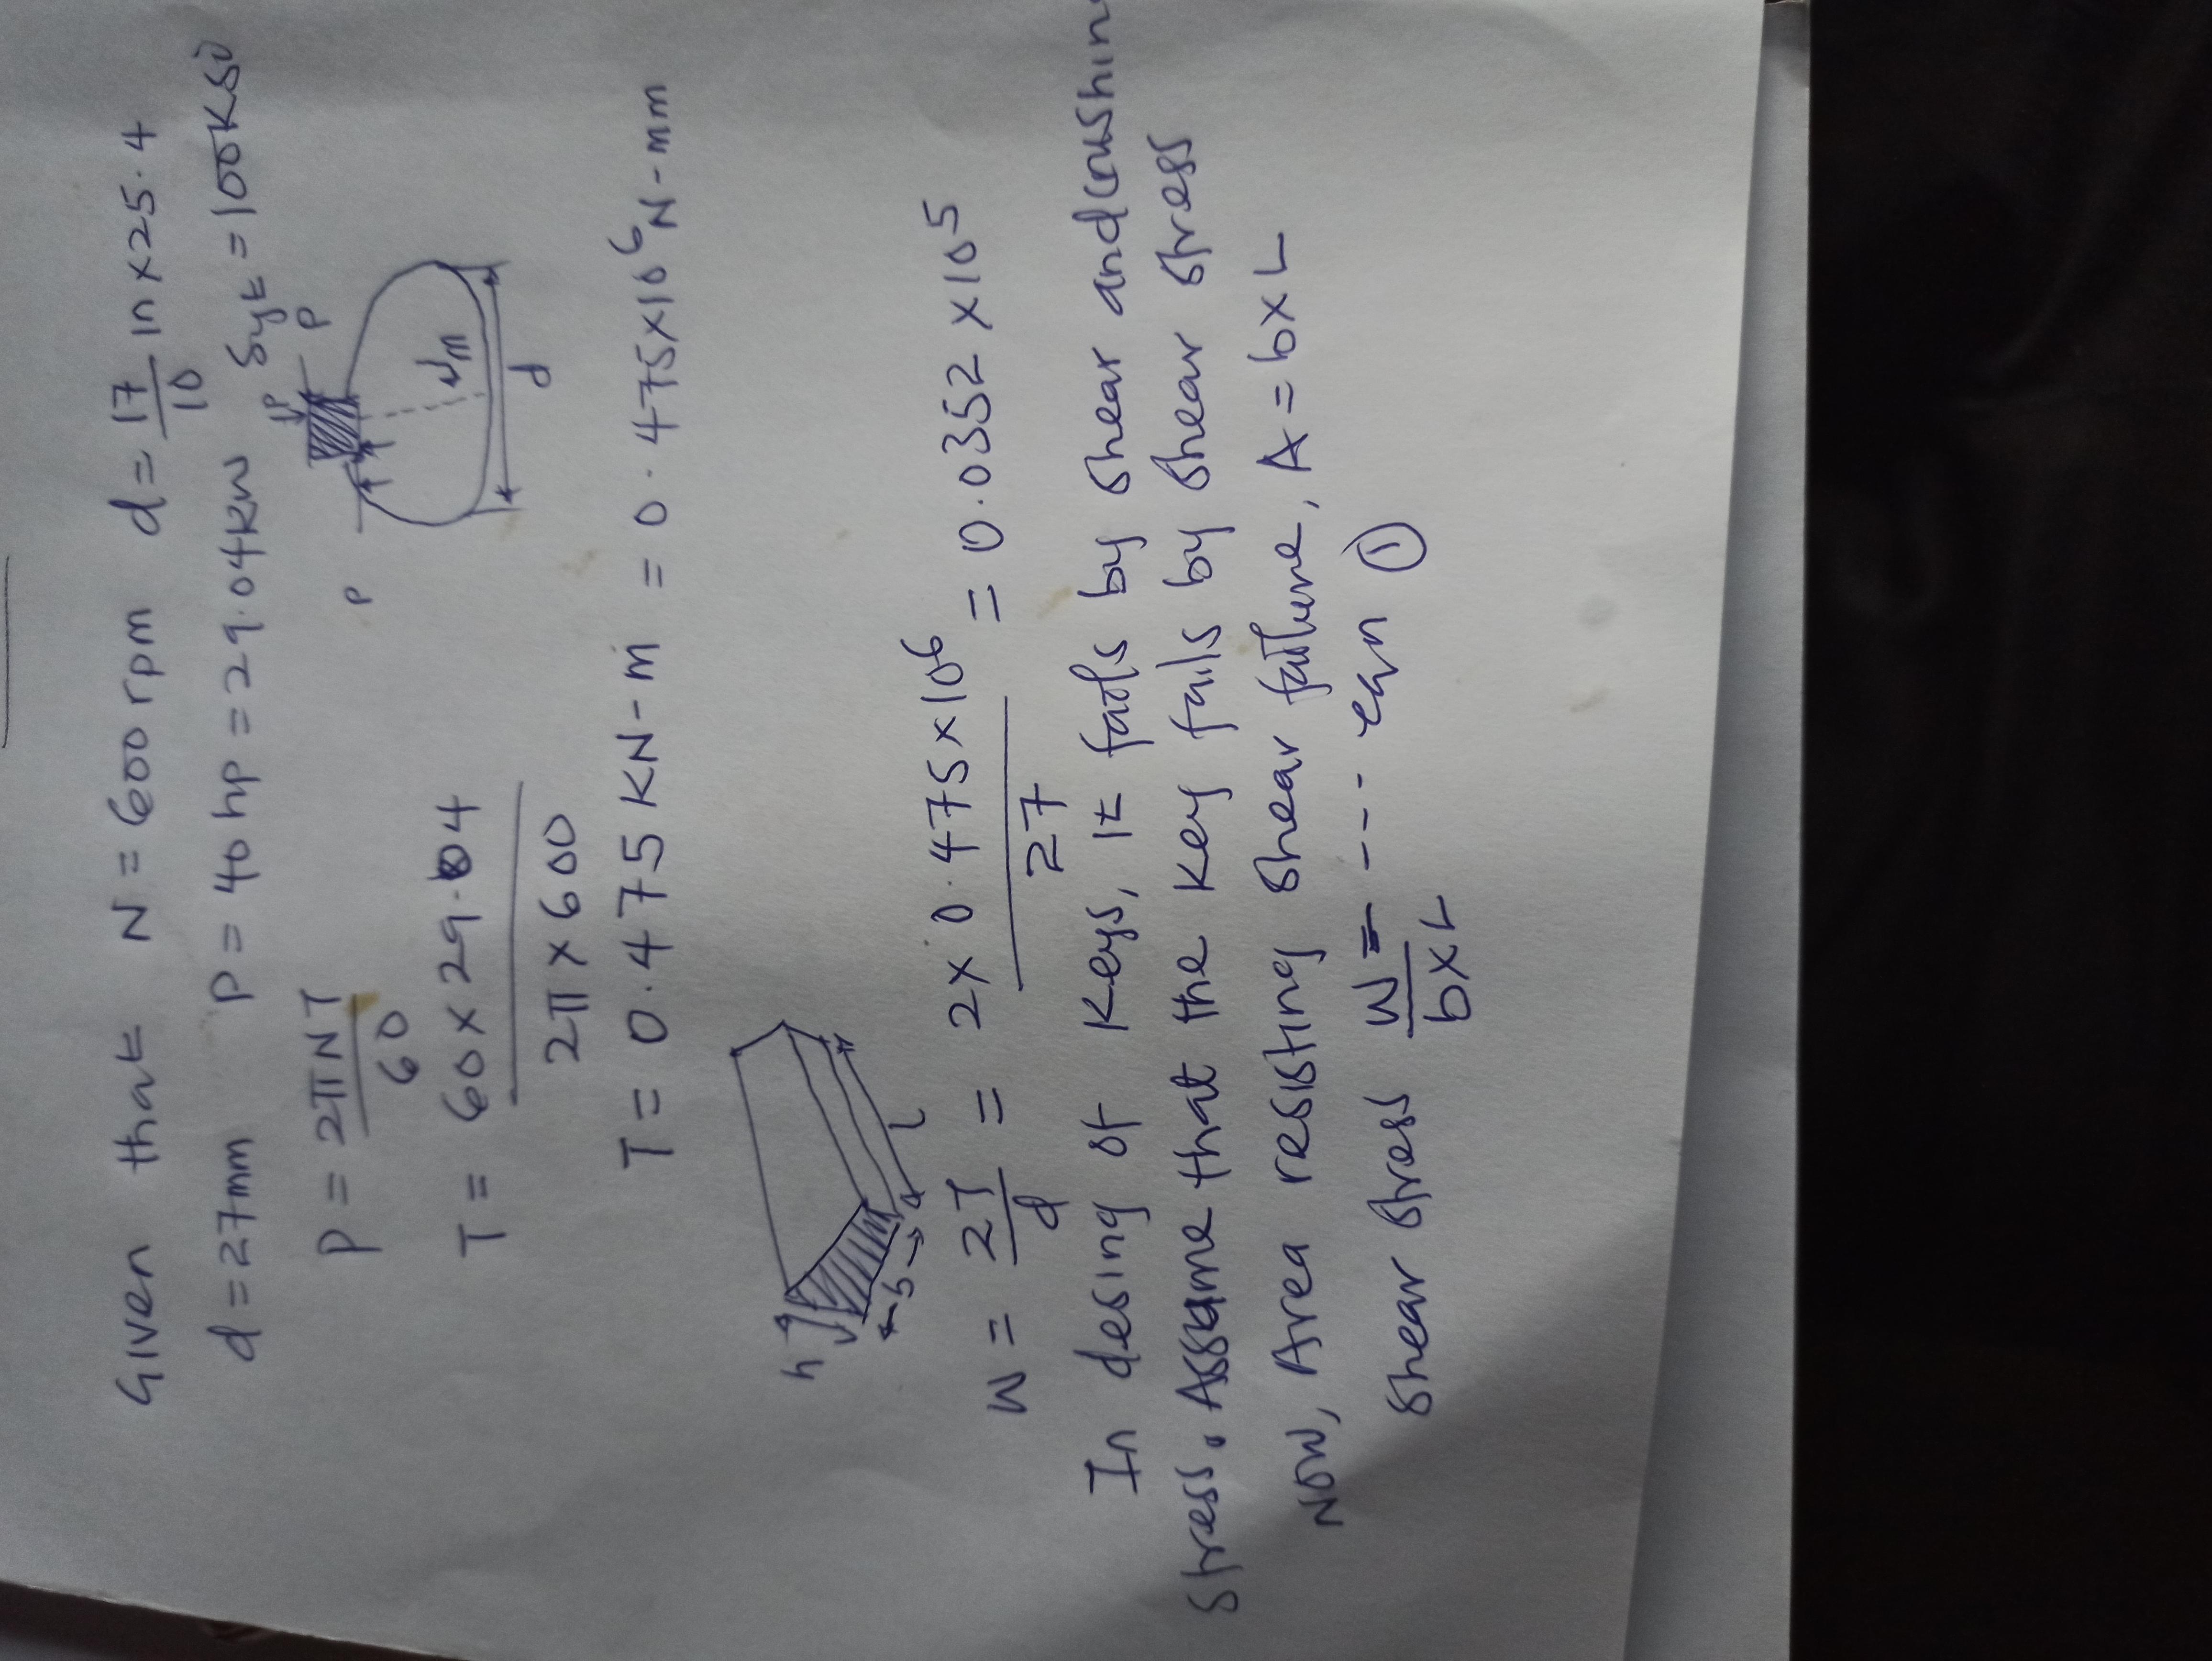 Given that N = 600 rpm d = 17/10 in x 25.4
d = 27mm P = 40 hp = 29.04 KW Syt = 100 KSi
P = 2πNT/60
T = 60 x 29.04 / 2π x 600
P
↓P
P
d
T = 0.475 KN-m = 0.475 x 10^6 N-mm
h
b
L
W = 2T/d = 2 x 0.475 x 10^6 / 27 = 0.0352 x 10^5
In desing of Keys, it fails by shear and crushing
stress. Assume that the key fails by shear stress
Now, Area resisting shear failure, A = b x L
Shear stress W/b x L = ---- eqn ①